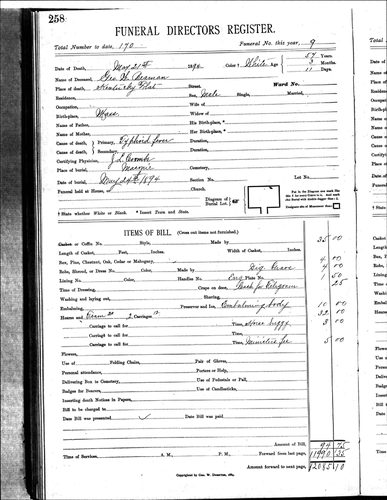 258
FUNERAL DIRECTORS REGISTER.
Total Number to date, 170 Funeral No. this year, 9
Date of Death, May 21st 1894 Color † White Age 57 Years. 3 Months 11 Days.
Name of Deceased, Geo. W.
Place of death, Kentucky Flat Street. Ward No.
Residence, Sex, Male Single, Married,
Occupation, Wife of
Birth-place, Mass Widow of
Name of Father, His Birth-place, *
Name of Mother, Her Birth-place, *
Cause of death, Primary, Typhoid fever Duration,
Cause of death, Secondary, Duration,
Certifying Physician, J L
Place of burial, Cemetery,
Date of burial, May 24th 1894 Section No. Lot No.
Funeral held at Home, Church,
Diagram of Burial Lot.
Put in the Diagram
Designate site of Monument thus
† State whether White or Black. * Insert Town and State.
ITEMS OF BILL. (Cross out items not furnished.)
Casket or Coffin No. Style, Made by 35 00
Length of Casket, Feet, Inches. Width of Casket, Inches.
Box, Pine, Chestnut, Oak, Cedar or Mahogany, 4 00
Robe, Shroud, or Dress No. Color, Made by Dig Grave 4 00
Lining No. Color, Handles No. Eng. Plate No. 1 50
Time of Dressing, Crape on door, Cash for Telegram 25
Washing and laying out, Shaving,
Embalming, Preserver and Ice, Embalming body 10 00
Hearse and Team 20 2 Carriages 12 32 00
Carriage to call for Time, Horse buggy 3 00
Carriage to call for Time,
Carriage to call for Time, Minister fee 5 00
Flowers,
Use of Folding Chairs, Pair of Gloves,
Personal attendance, Porters or Help,
Delivering Box to Cemetery, Use of Pedestals or Pall,
Badges for Bearers, Use of Candlesticks,
Inserting death Notices in Papers,
Bill to be charged to
Date Bill was presented Date Bill was paid
Amount of Bill, 94 75
Time of Services, A. M., P. M. Forward from last page, 11990 35
Amount forward to next page, 12085 10
Copyrighted by Geo. W.